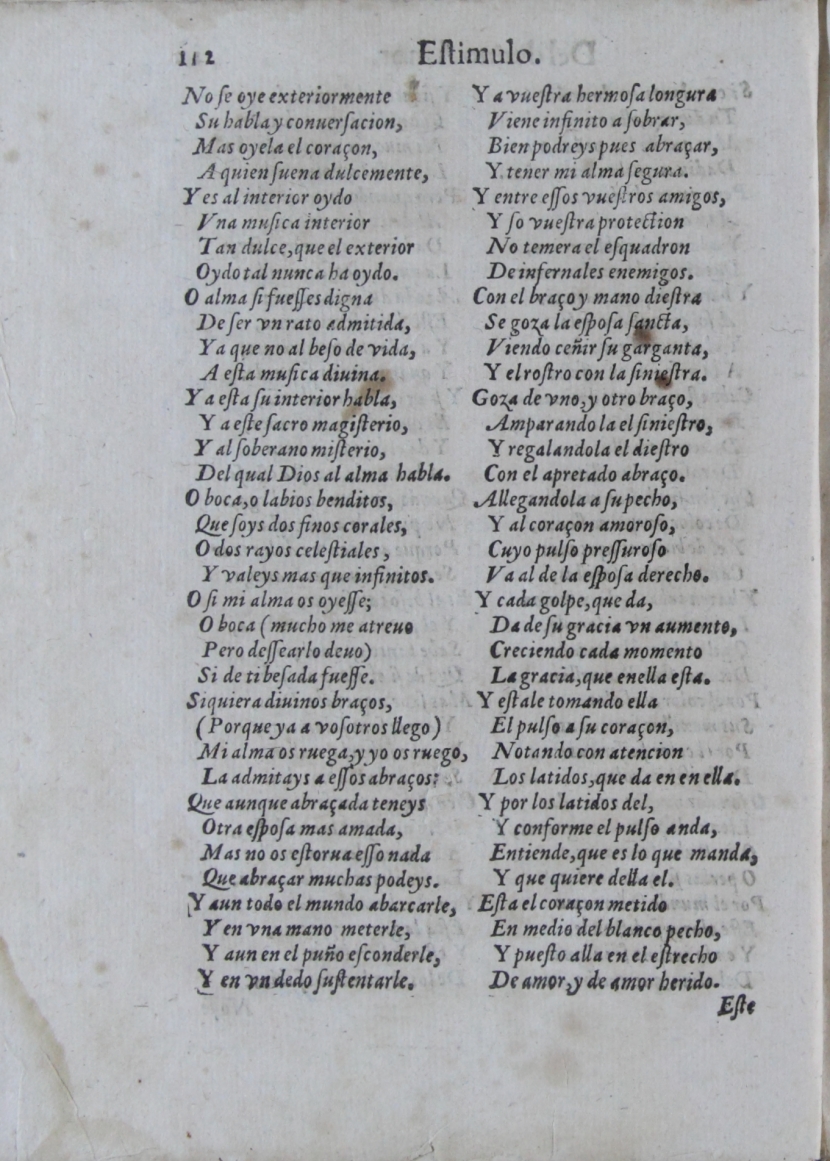 112
Eſtimulo.
No ſe oye exteriormente
Su habla y conuerſacion,
Mas oyela el coraçon,
A quien ſuena dulcemente,
Y es al interior oydo
Vna muſica interior
Tan dulce, que el exterior
Oydo tal nunca ha oydo.
O alma ſi fueſſes digna
De ſer vn rato admitida,
Ya que no al beſo de vida,
A eſta muſica diuina.
Y a eſta ſu interior habla,
Y a eſte ſacro magiſterio,
Y al ſoberano miſterio,
Del qual Dios al alma habla.
O boca, o labios benditos,
Que ſoys dos finos corales,
O dos rayos celeſtiales,
Y valeys mas que infinitos.
O ſi mi alma os oyeſſe;
O boca (mucho me atreuo
Pero deſſearlo deuo)
Si de ti beſada fueſſe.
Siquiera diuinos braços,
(Porque ya a voſotros llego)
Mi alma os ruega, y yo os ruego,
La admitays a eſſos abraços:
Que aunque abraçada teneys
Otra eſpoſa mas amada,
Mas no os eſtorua eſſo nada
Que abraçar muchas podeys.
Y aun todo el mundo abarcarle,
Y en vna mano meterle,
Y aun en el puño eſconderle,
Y en vn dedo ſuſtentarle.
Y a vueſtra hermoſa longura
Viene infinito a ſobrar,
Bien podreys pues abraçar,
Y tener mi alma ſegura.
Y entre eſſos vueſtros amigos,
Y ſo vueſtra protection
No temera el eſquadron
De infernales enemigos.
Con el braço y mano dieſtra
Se goza la eſpoſa ſancta,
Viendo ceñir ſu garganta,
Y el roſtro con la ſinieſtra.
Goza de vno, y otro braço,
Amparandola el ſinieſtro,
Y regalandola el dieſtro
Con el apretado abraço.
Allegandola a ſu pecho,
Y al coraçon amoroſo,
Cuyo pulſo preſſuroſo
Va al de la eſpoſa derecho.
Y cada golpe, que da,
Da de ſu gracia vn aumento,
Creciendo cada momento
La gracia, que en ella eſta.
Y eſtale tomando ella
El pulſo a ſu coraçon,
Notando con atencion
Los latidos, que da en en ella.
Y por los latidos del,
Y conforme el pulſo anda,
Entiende, que es lo que manda,
Y que quiere della el.
Eſta el coraçon metido
En medio del blanco pecho,
Y pueſto alla en el eſtrecho
De amor, y de amor herido.
Eſte